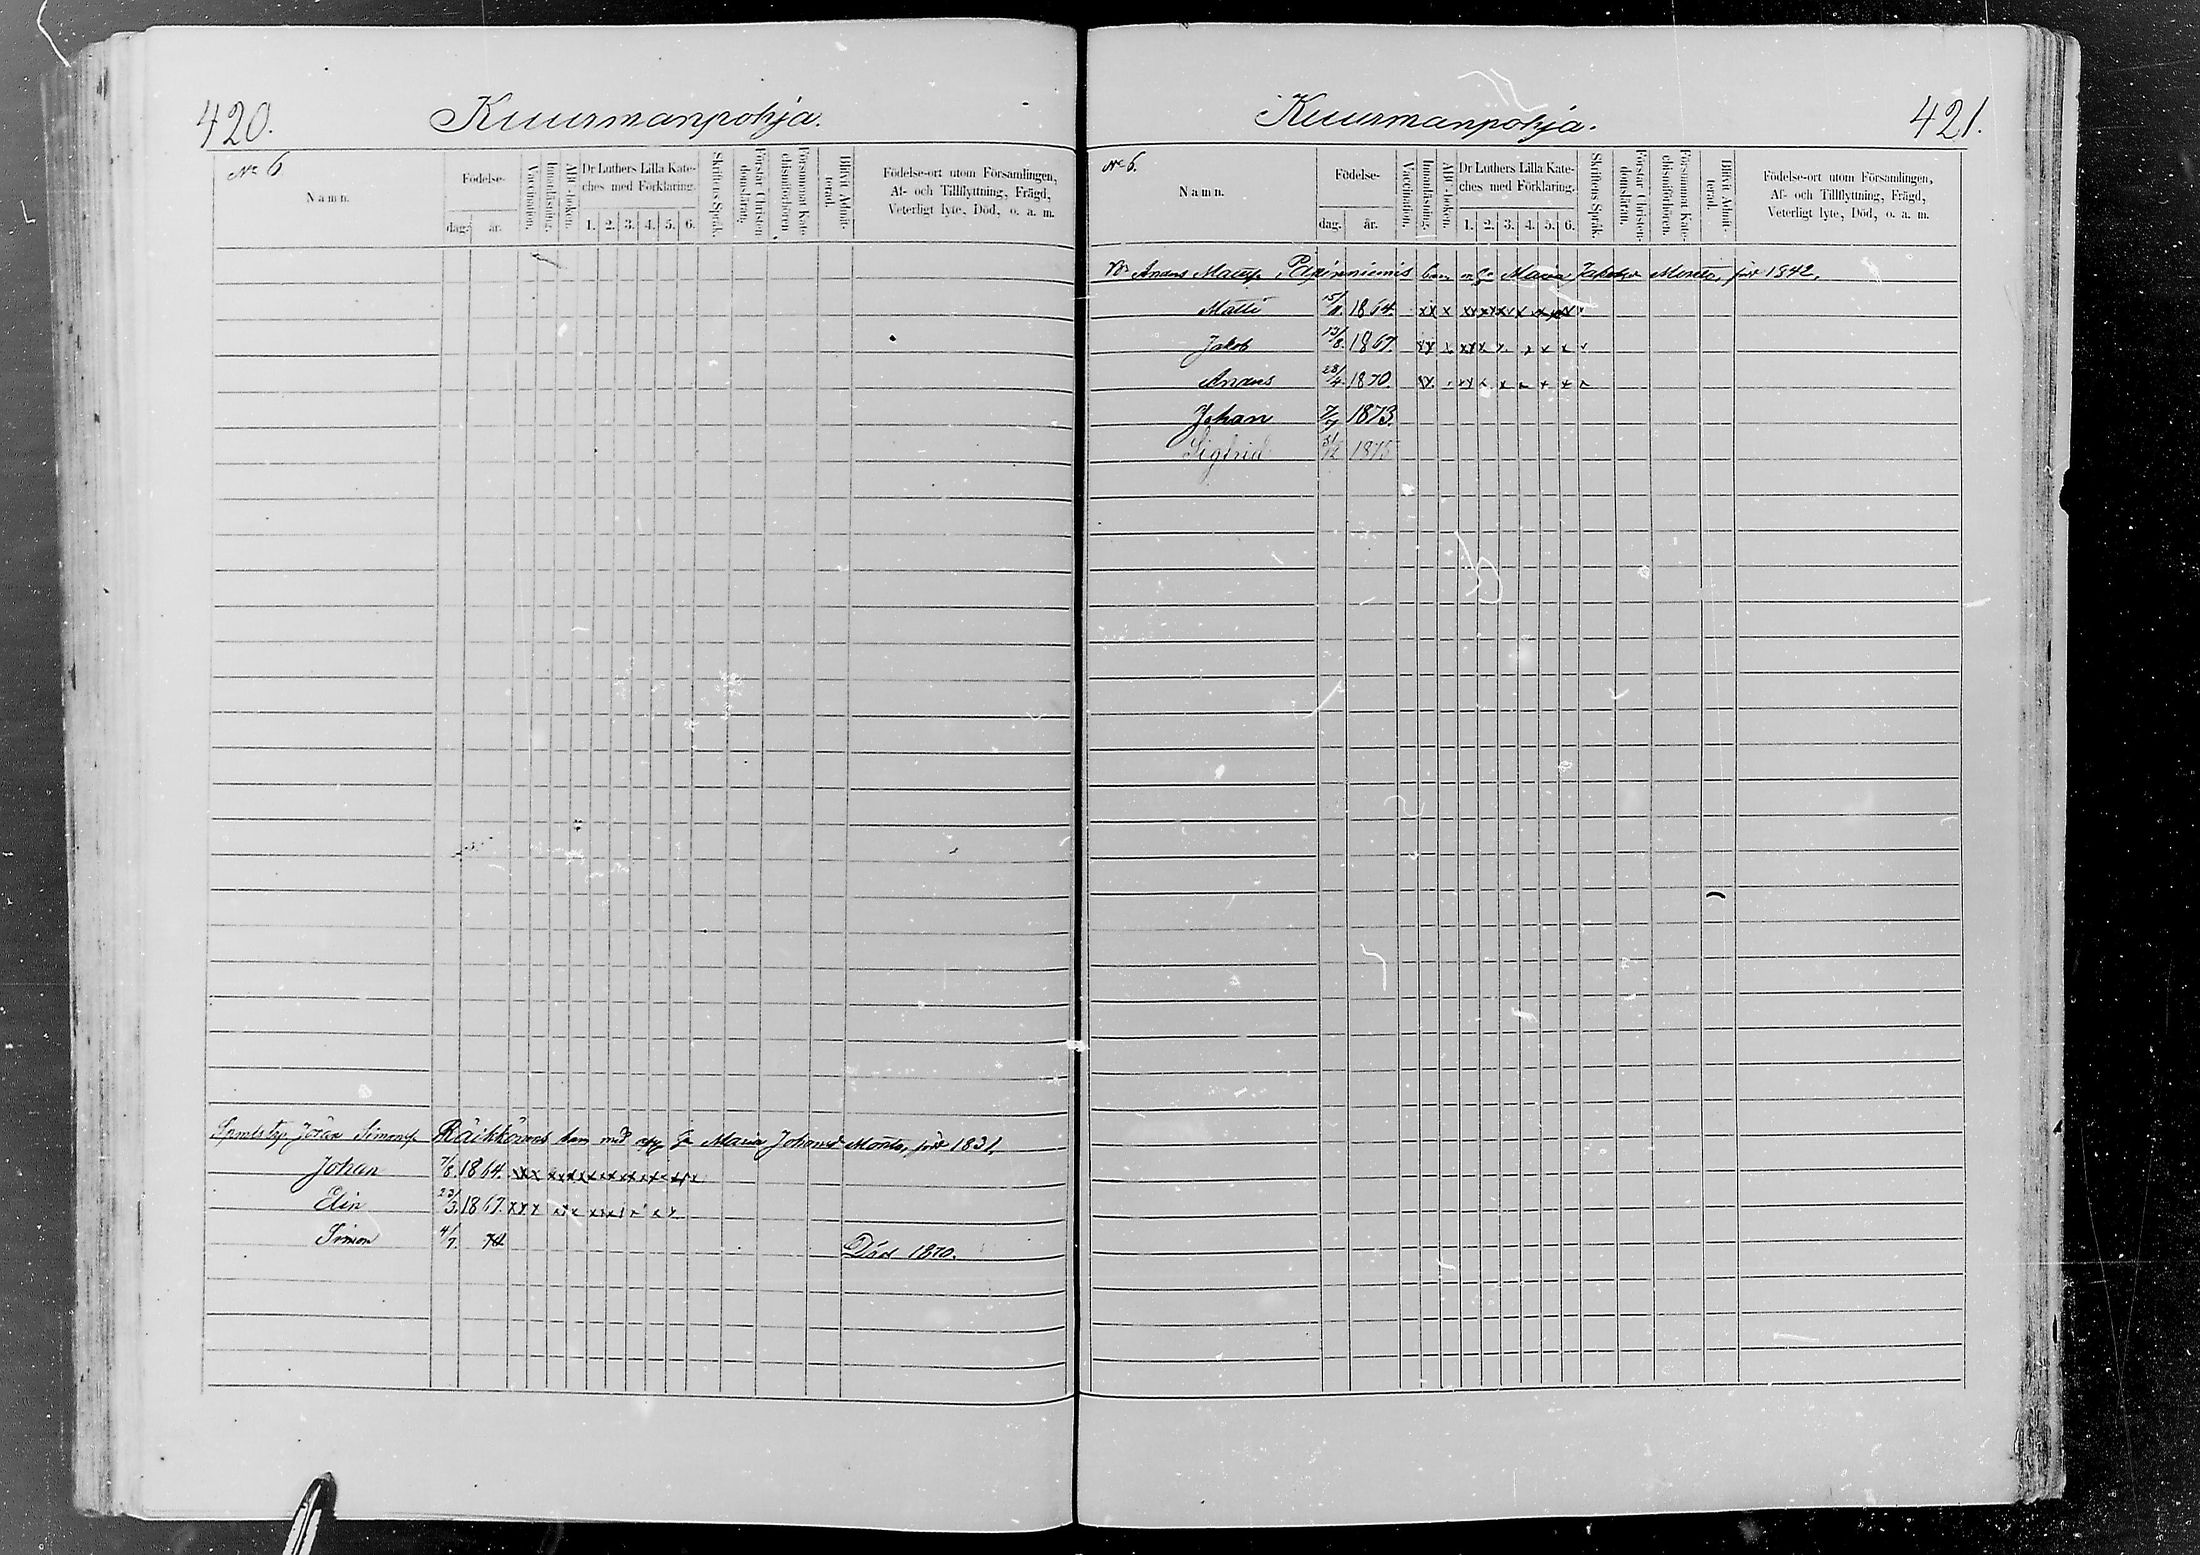 420.
Kuurmanpohja.
No 6
Namn.
Födelse-
dag.
år.
Vaccination.
Innanläsning.
ABC-boken.
Dr Luthers Lilla Kate-
ches med Förklaring.
1. 2. 3. 4. 5. 6.
Skriftens Språk.
Förstår Christen-
domsläran.
Försummat Kate-
chismiförhören.
Blifvit Admit-
terad.
Födelse-ort utom Församlingen,
Af- och Tillflyttning, Frägd,
Veterligt lyte, Död, o. a. m.
Jöran Simons. Räikkönens barn med Maria Johansd. född 1831.
Johan 7/8. 1864. x x x x x x x x x x x x x
Elin 23/3. 1867. x x x x x x x x x x x
Simon 4/7. 70 Död 1870.
Kuurmanpohja.
421.
No 6.
Namn.
Födelse-
dag.
år.
Vaccination.
Innanläsning.
ABC-boken.
Dr Luthers Lilla Kate-
ches med Förklaring.
1. 2. 3. 4. 5. 6.
Skriftens Språk.
Förstår Christen-
domsläran.
Försummat Kate-
chismiförhören.
Blifvit Admit-
terad.
Födelse-ort utom Församlingen,
Af- och Tillflyttning, Frägd,
Veterligt lyte, Död, o. a. m.
Anders Matts. Maria Jakobsd. född 1842.
Matti 15/11. 1864. x x x x x x x x x x x x
Jakob 13/8. 1867. x x x x x x x x x x x
Anders 28/4. 1870. x x x x x x x x x x
Johan 1873.
Sigfrid 1875